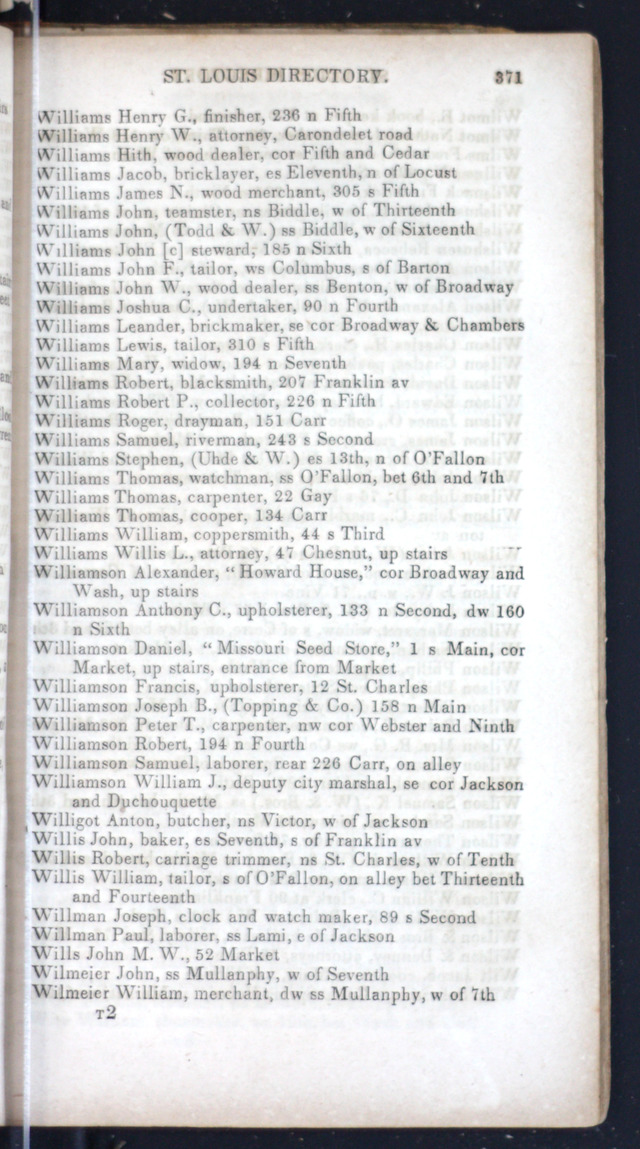 ST. LOUIS DIRECTORY. 371
Williams Henry G., finisher, 236 n Fifth
Williams Henry W., attorney, Carondelet road
Williams Hith, wood dealer, cor Fifth and Cedar
Williams Jacob, bricklayer, es Eleventh, n of Locust
Williams James N., wood merchant, 305 s Fifth
Williams John, teamster, ns Biddle, w of Thirteenth
Williams John, (Todd & W.) ss Biddle, w of Sixteenth
Williams John [c] steward, 185 n Sixth
Williams John F., tailor, ws Columbus, s of Barton
Williams John W., wood dealer, ss Benton, w of Broadway
Williams Joshua C., undertaker, 90 n Fourth
Williams Leander, brickmaker, se cor Broadway & Chambers
Williams Lewis, tailor, 310 s Fifth
Williams Mary, widow, 194 n Seventh
Williams Robert, blacksmith, 207 Franklin av
Williams Robert P., collector, 226 n Fifth
Williams Roger, drayman, 151 Carr
Williams Samuel, riverman, 243 s Second
Williams Stephen, (Uhde & W.) es 13th, n of O'Fallon
Williams Thomas, watchman, ss O'Fallon, bet 6th and 7th
Williams Thomas, carpenter, 22 Gay
Williams Thomas, cooper, 134 Carr
Williams William, coppersmith, 44 s Third
Williams Willis L., attorney, 47 Chesnut, up stairs
Williamson Alexander, "Howard House," cor Broadway and
Wash, up stairs
Williamson Anthony C., upholsterer, 133 n Second, dw 160
n Sixth
Williamson Daniel, "Missouri Seed Store," 1 s Main, cor
Market, up stairs, entrance from Market
Williamson Francis, upholsterer, 12 St. Charles
Williamson Joseph B., (Topping & Co.) 158 n Main
Williamson Peter T., carpenter, nw cor Webster and Ninth
Williamson Robert, 194 n Fourth
Williamson Samuel, laborer, rear 226 Carr, on alley
Williamson William J., deputy city marshal, se cor Jackson
and Duchouquette
Willigot Anton, butcher, ns Victor, w of Jackson
Willis John, baker, es Seventh, s of Franklin av
Willis Robert, carriage trimmer, ns St. Charles, w of Tenth
Willis William, tailor, s of O'Fallon, on alley bet Thirteenth
and Fourteenth
Willman Joseph, clock and watch maker, 89 s Second
Willman Paul, laborer, ss Lami, e of Jackson
Wills John M. W., 52 Market
Wilmeier John, ss Mullanphy, w of Seventh
Wilmeier William, merchant, dw ss Mullanphy, w of 7th
T2